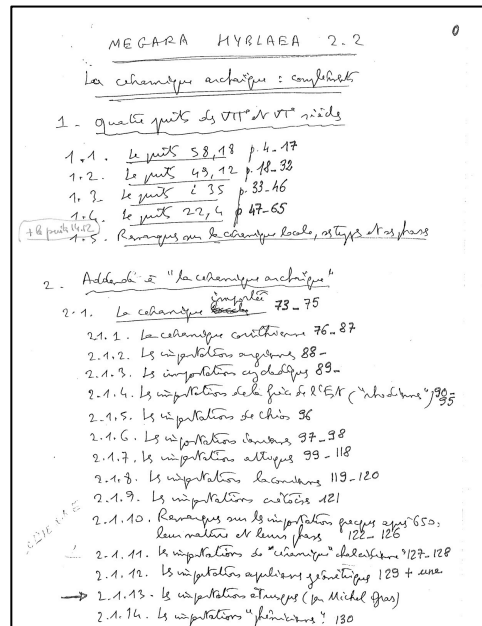 0
MEGARA HYBLAEA 2.2
La céramique archaïque : compléments
1 - Quatre puits des VIIe et VIe siècles
1.1. Le puits 58,18 p. 4-17
1.2. Le puits 49,12 p. 18-32
1.3 Le puits i 35 p. 33-46
1.4. Le puits 22,4 p 47-65
+ le puits 14.52
1.5. Remarques sur la céramique locale, ses types et ses phases
2 - Addenda à "la céramique archaïque"
2.1. La céramique importée 73-75
2.1.1. La céramique corinthienne 76-87
2.1.2. Les importations argiennes 88-
2.1.3. Les importations cycladiques 89-
2.1.4. Les importations de la Grèce de l'Est ("rhodiennes") 90-95
2.1.5. Les importations de Chios 96
2.1.6. Les importations ioniennes 97-98
2.1.7. Les importations attiques 99-118
2.1.8. Les importations laconiennes 119-120
2.1.9. Les importations crétoises 121
2.1.10. Remarques sur les importations grecques après 650,
leur nature et leurs phases 122-126
2.1.11. Les importations de "céramique" chalcidienne" 127-128
2.1.12. Les importations apuliennes géométriques 129 + une
→ 2.1.13. Les importations étrusques (par Michel Gras)
2.1.14. Les importations "phéniciennes" 130